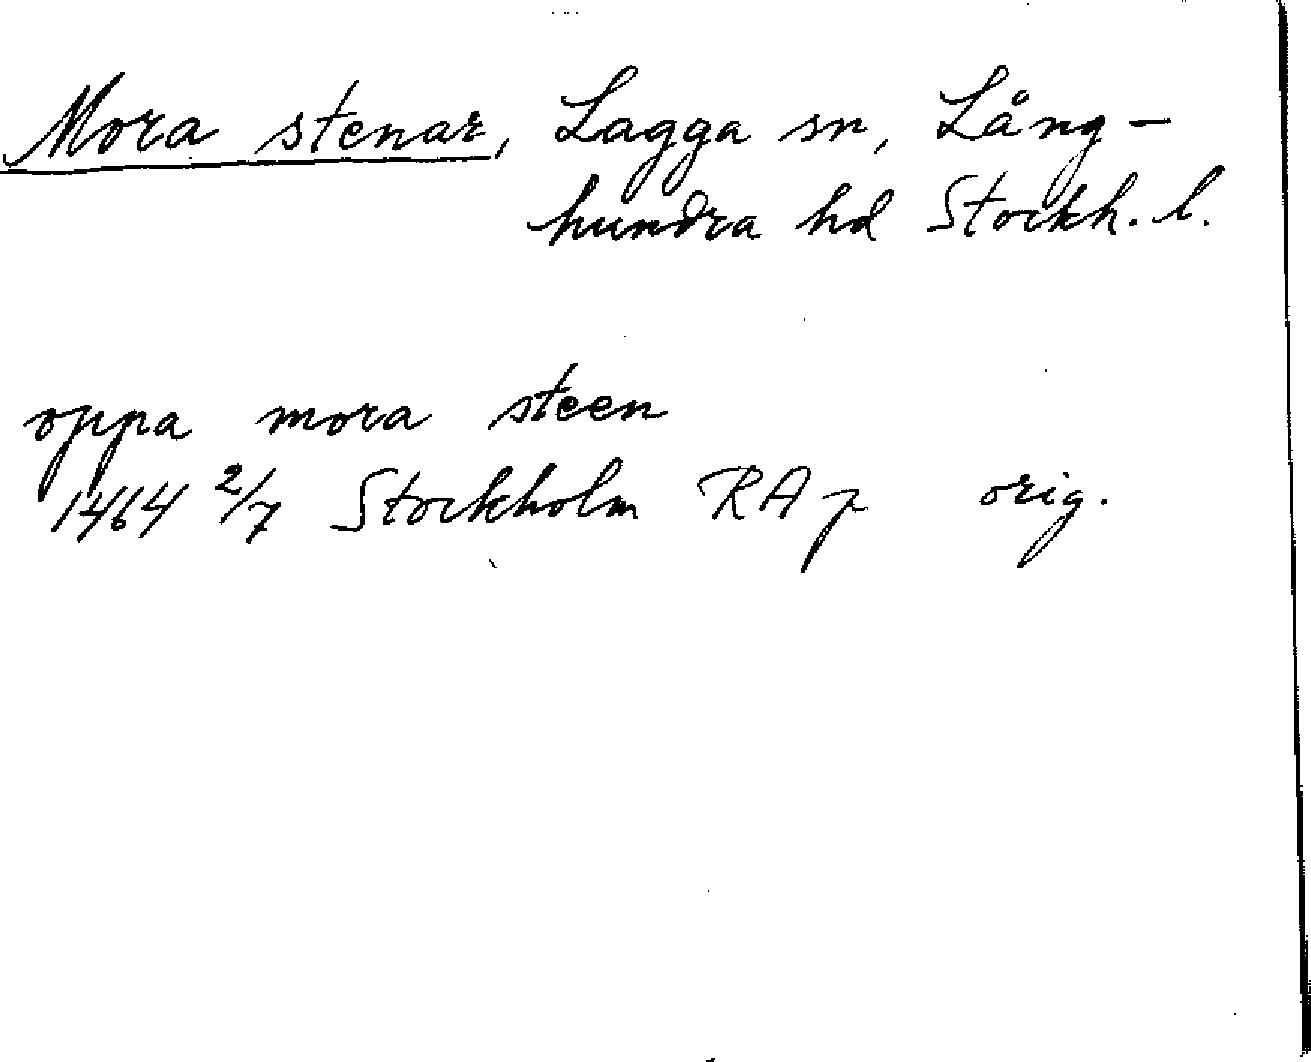 Mora stenar, Lagga sn, Lång-
hundra hd Stockh. l.
oppa mora steen
1464 2/7 Stockholm RAp orig.